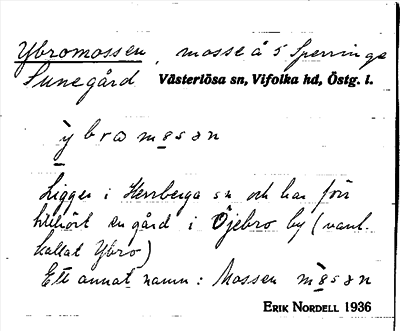 Ybromossen, mosse å 5 Sperringe
Sunegård Västerlösa sn, Vifolka hd, Östg. l.
ỳbromosən
Ligger i Herrberga sn och har förr
tillhört en gård i Öjebro by (vanl.
kallat Ybro)
Ett annat namn: Mossen mòsən
ERIK NORDELL 1936